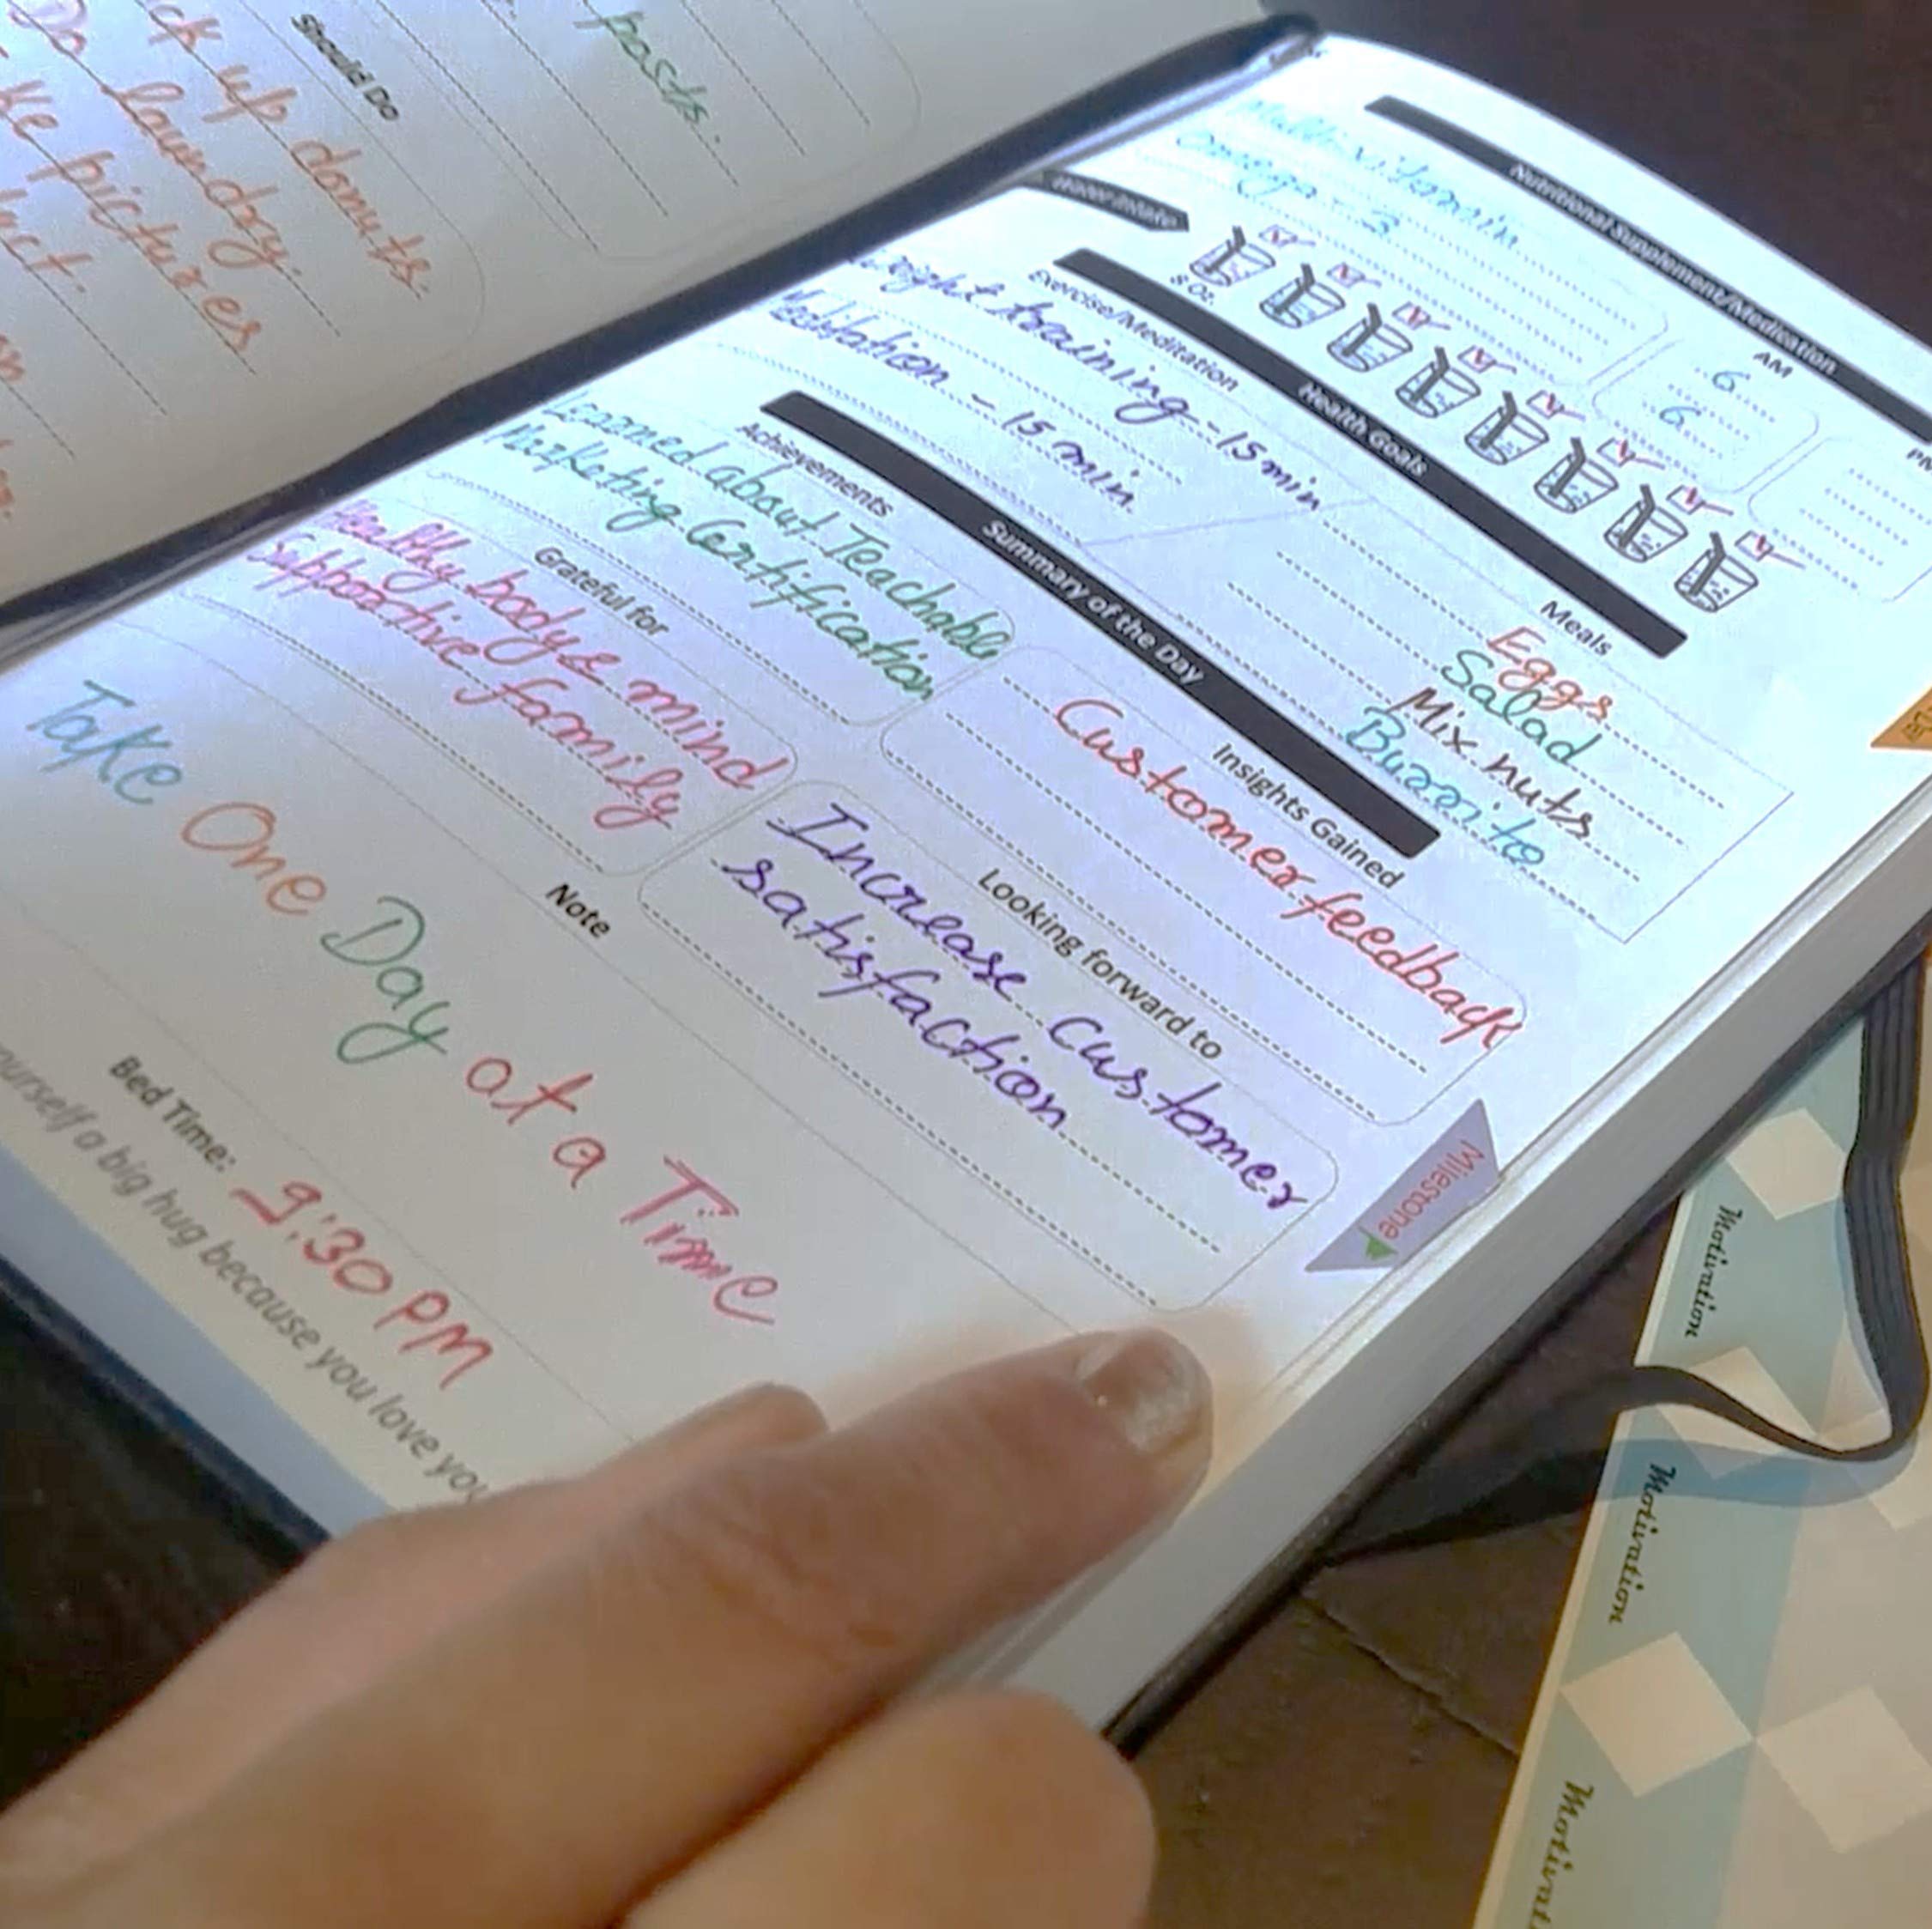 posts.
Should Do
up donuts.
Do laundry.
pictures
Nutritional Supplement/Medication
AM
Multi-vitamin
6
Omega-3
6
Water Intake
8 Oz.
Health Goals
Exercise/Meditation
training - 15 min
Meditation - 15 min.
Meals
Eggs
Salad
Mix nuts
Burrito
Summary of the Day
Achievements
Learned about Teachable
Marketing Certification
Insights Gained
Customer feedback
Grateful for
Healthy body & mind
Supportive family
Looking forward to
Increase Customer
satisfaction
Note
Take One Day at a Time
Bed Time: 9:30 PM
a big hug because you love
Milestone
Motivation
Motivation